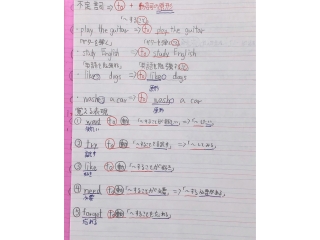 不定詞 ⇒ to + 動詞の原形
「〜すること」
・play the guitar ⇒ to play the guitar
「ギターを弾く」 「ギターを弾くこと」
・study English ⇒ to study English
「英語を勉強」 「英語を勉強すること」
・likes dogs ⇒ to like dogs
原形
・washes a car ⇒ to wash a car
原形
覚える表現
① want to 動 「〜することが欲しい」⇒「〜したい」
欲しい
② try to 動 「〜することを試す」⇒「〜してみる」
試す
③ like to 動 「〜することが好き」
好き
④ need to 動 「〜することが必要」⇒「〜する必要がある」
必要
⑤ forget to 動 「〜することを忘れる」
忘れる